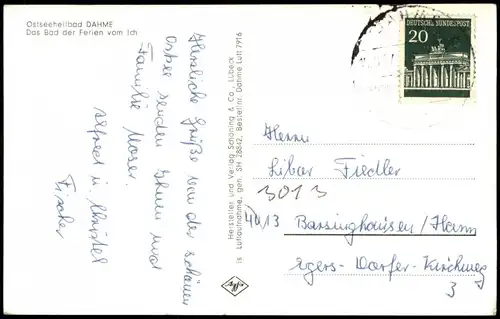 Ostseeheilbad DAHME
Das Bad der Ferien vom Ich
Herzliche Grüße von der schönen
Ostsee senden Ihnen und
Familie Moser.
Alfred u. Christel
Fischer
Hersteller und Verlag Schöning & Co., Lübeck
is Luftaufnahme, geh. SH 28842, Bestellnr. Dahme Luft 7916
DEUTSCHE BUNDESPOST
20
Herrn
Libor Fiedler
3013
4013
Barsinghausen/Hann
Egers-Dorfer-Kirchweg
3